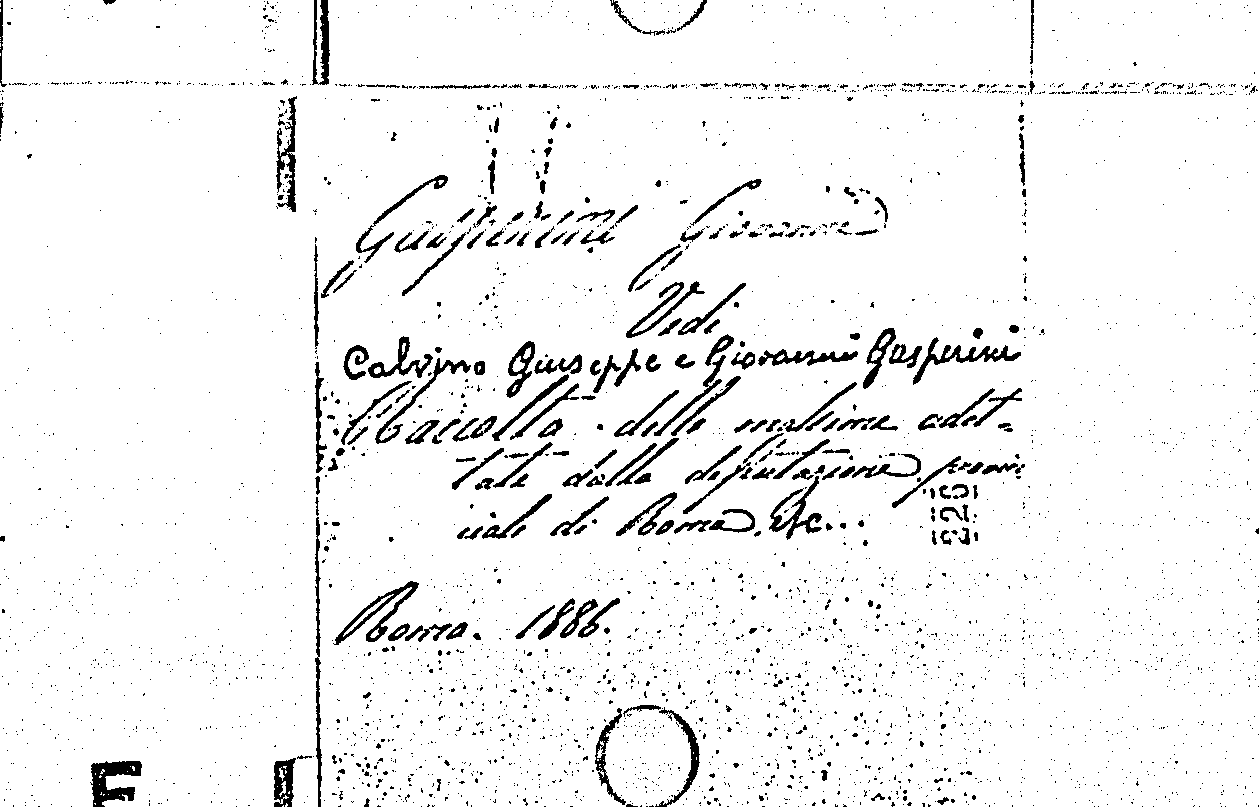 Gasperini Giovanni
Vedi
Calvino Giuseppe e Giovanni Gasperini
Raccolta delle massime adot-
tate dalla deputazione provin
ciale di Roma. Etc...
Roma. 1886.
E